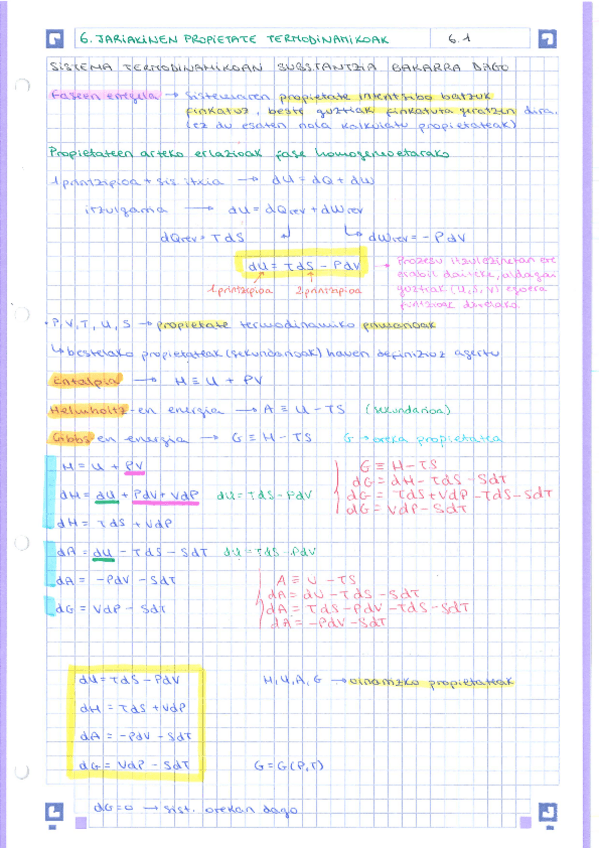 6. JARIAKINEN PROPIETATE TERMODINAMIKOAK 6.1
SISTEMA TERMODINAMIKOAN SUBSTANTZIA BAKARRA DAGO
Faseen erregela → Sistemaren propietate intentsibo batzuk
finkatuz, beste guztiak finkatuta geratzen dira.
(ez du esaten nola kalkulatu propietateak)
Propietateen arteko erlazioak fase homogeneoetarako
1 printzipioa + sis. itxia → dU = dQ + dW
itzulgarria → dU = dQrev + dWrev
dQrev = TdS dWrev = -PdV
dU = TdS - PdV → Prozesu itzulezinetan ere
erabil daiteke, aldagai
1. printzipioa 2. printzipioa guztiak (U, S, V) egoera
funtzioak direlako
· P, V, T, U, S → propietate termodinamiko primarioak
↳ bestelako propietateak (sekundarioak) hauen definizioz agertu
Entalpia → H ≡ U + PV
Helmholtz-en energia → A ≡ U - TS (sekundarioa)
Gibbs en energia → G ≡ H - TS G → oreka propietatea
H = U + PV G ≡ H - TS
dG = dH - TdS - SdT
dH = dU + PdV + VdP dU = TdS - PdV dG = TdS + VdP - TdS - SdT
dG = VdP - SdT
dH = TdS + VdP
dA = dU - TdS - SdT dU = TdS - PdV
dA = -PdV - SdT A ≡ U - TS
dA = dU - TdS - SdT
dG = VdP - SdT dA = TdS - PdV - TdS - SdT
dA = -PdV - SdT
dU = TdS - PdV H, U, A, G → oinarrizko propietateak
dH = TdS + VdP
dA = -PdV - SdT
dG = VdP - SdT G = G(P, T)
dG = 0 → sist. orekan dago